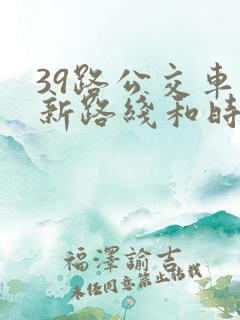 39路公交車
新路綫和時
福澤諭吉
未经同意禁止转载